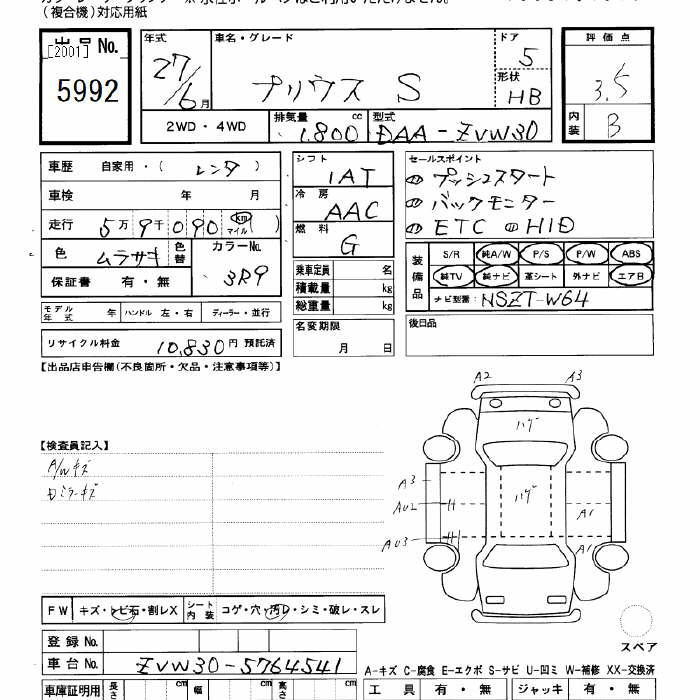 （複合機）対応用紙
出品No.
[2001]
5992
年式
27/6月
車名・グレード
プリウス S
ドア
5
形状
HB
評価点
3.5
内装
B
2WD・4WD
排気量
1,800cc
型式
DAA-ZVW30
車歴 自家用・（レンタ）
車検 年 月
走行 5万9千090 km マイル
色 ムラサキ 色替
カラーNo.
3R9
保証書 有・無
モデル年式 年 ハンドル 左・右 ディーラー・並行
リサイクル料金 10,830円 預託済
シフト
IAT
冷房
AAC
燃料
G
乗車定員 名
積載量 kg
総重量 kg
名変期限
月 日
セールスポイント
① プッシュスタート
① バックモニター
① ETC ① HID
装備品
S/R 純A/W P/S P/W ABS
純TV 純ナビ 革シート 外ナビ エアB
ナビ型番 NSZT-W64
後日品
【出品店申告欄（不良箇所・欠品・注意事項等）】
【検査員記入】
A/Wキズ
Dミラーキズ
A2 A3
ハゲ
A3
ハゲ
AU2 H
A1
AU3 H
A1
スペア
FW キズ・トビ石・割レX
シート内装 コゲ・穴・汚レ・シミ・破レ・スレ
登録No.
車台No. ZVW30-5764541
A-キズ C-腐食 E-エクボ S-サビ U-凹ミ W-補修 XX-交換済
車庫証明用 長さ cm 幅 cm 高さ cm
工具 有・無 ジャッキ 有・無